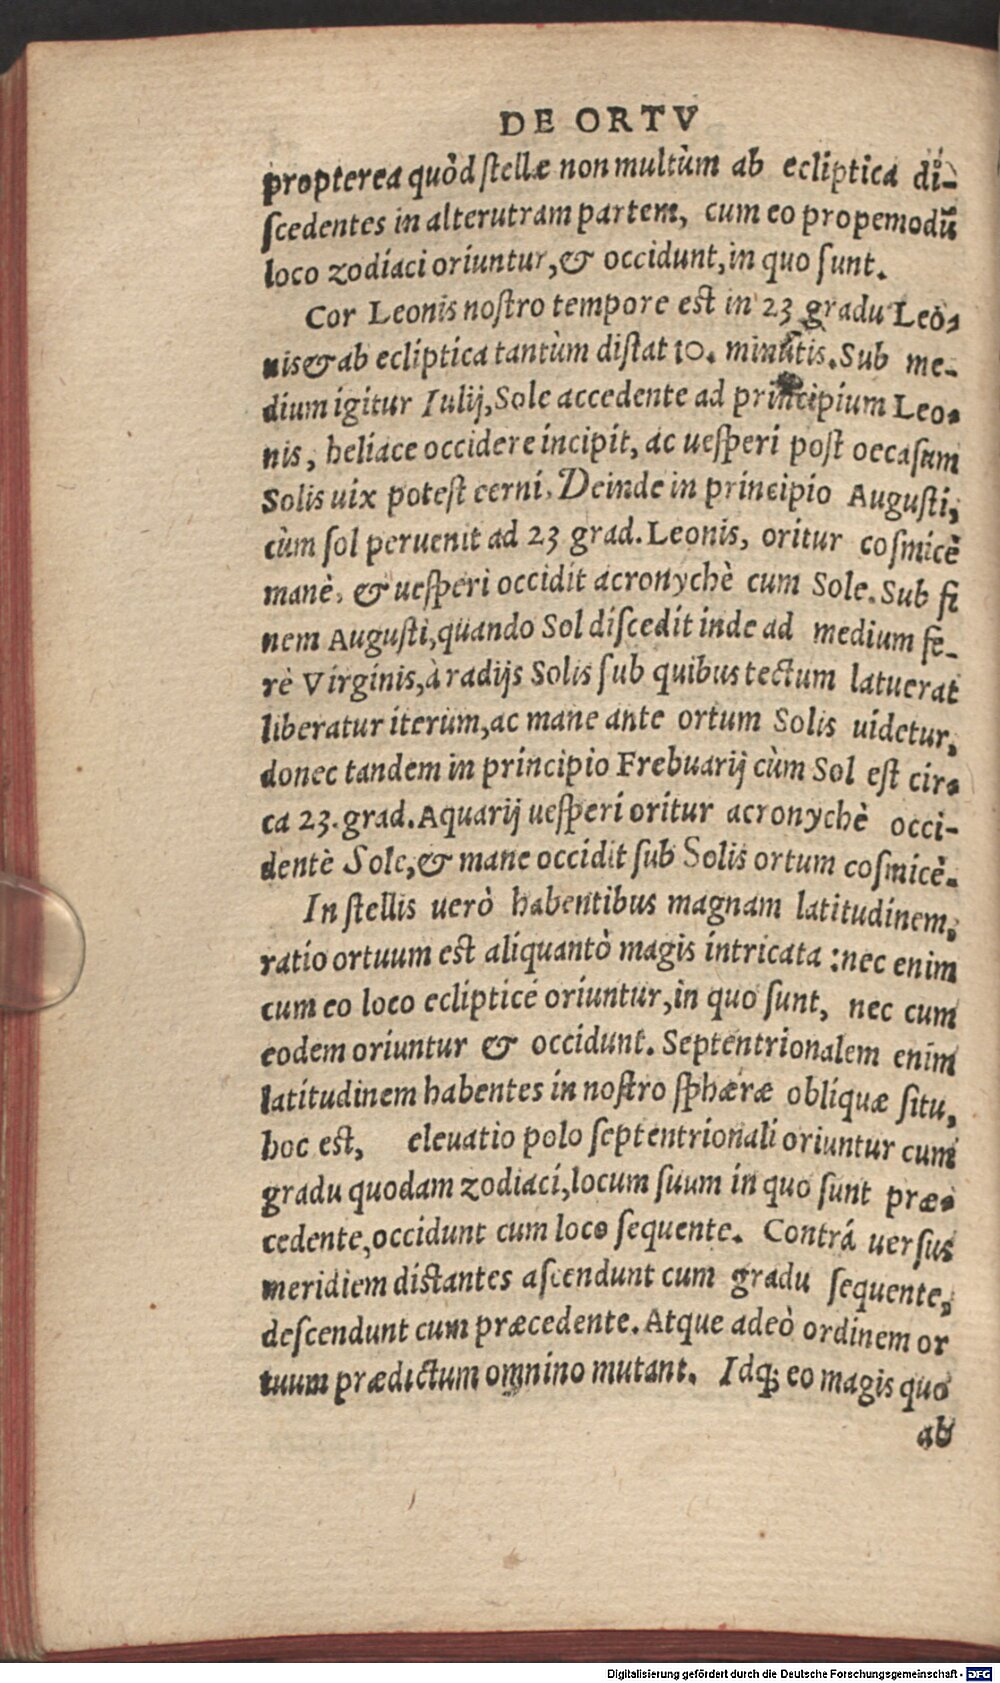 DE ORTV
propterea quòd stellæ non multùm ab ecliptica di-
scedentes in alterutram partem, cum eo propemodũ
loco zodiaci oriuntur, & occidunt, in quo sunt.
Cor Leonis nostro tempore est in 23 gradu Leo-
nis & ab ecliptica tantùm distat 10. minutis. Sub me-
dium igitur Iulij, Sole accedente ad principium Leo-
nis, heliace occidere incipit, ac uesperi post occasum
Solis uix potest cerni. Deinde in principio Augusti,
cùm sol peruenit ad 23 grad. Leonis, oritur cosmicè
manè, & uesperi occidit acronychè cum Sole. Sub fi
nem Augusti, quando Sol discedit inde ad medium fe-
rè Virginis, à radijs Solis sub quibus tectum latuerat
liberatur iterum, ac mane ante ortum Solis uidetur,
donec tandem in principio Frebuarij cùm Sol est cir-
ca 23. grad. Aquarij uesperi oritur acronychè occi-
dentè Sole, & mane occidit sub Solis ortum cosmicè.
In stellis uerò habentibus magnam latitudinem,
ratio ortuum est aliquantò magis intricata : nec enim
cum eo loco eclipticé oriuntur, in quo sunt, nec cum
eodem oriuntur & occidunt. Septentrionalem enim
latitudinem habentes in nostro sphæræ obliquæ situ,
hoc est, eleuatio polo septentrionali oriuntur cum
gradu quodam zodiaci, locum suum in quo sunt præ-
cedente, occidunt cum loco sequente. Contrá uersus
meridiem distantes ascendunt cum gradu sequente,
descendunt cum præcedente. Atque adeò ordinem or
tuum prædictum omnino mutant. Idq; eo magis quo
ab
Digitalisierung gefördert durch die Deutsche Forschungsgemeinschaft - DFG